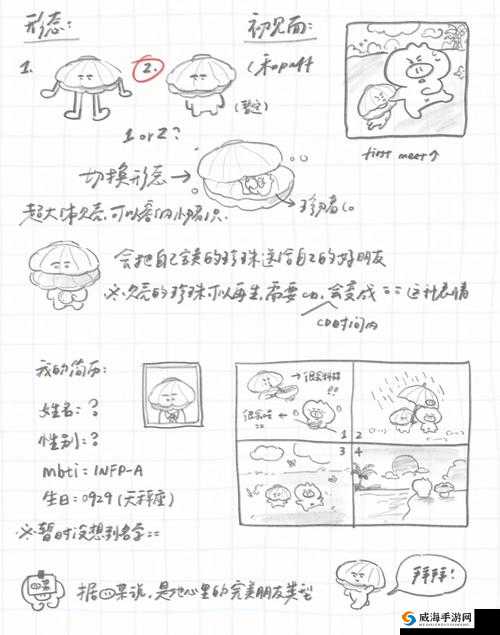 形态：
初见面：
1.
2.
（和puff
（暂定）
1 or 2？
first meet↑
切换形态→
→珍珠（。
超大体次壳，可以容纳
会把自己宝贵的珍珠送给自己的好朋友
※次壳的珍珠可以再生，需要cd，会变成 == 这种表情
CD时间内
我的简历：
姓名：？
性别：？
mbti：INFP-A
生日：0929（天秤座）
※暂时没想到名字==
1
2
3
4
据四菜说，是他心里的完美朋友类型
拜拜！
威海手游网